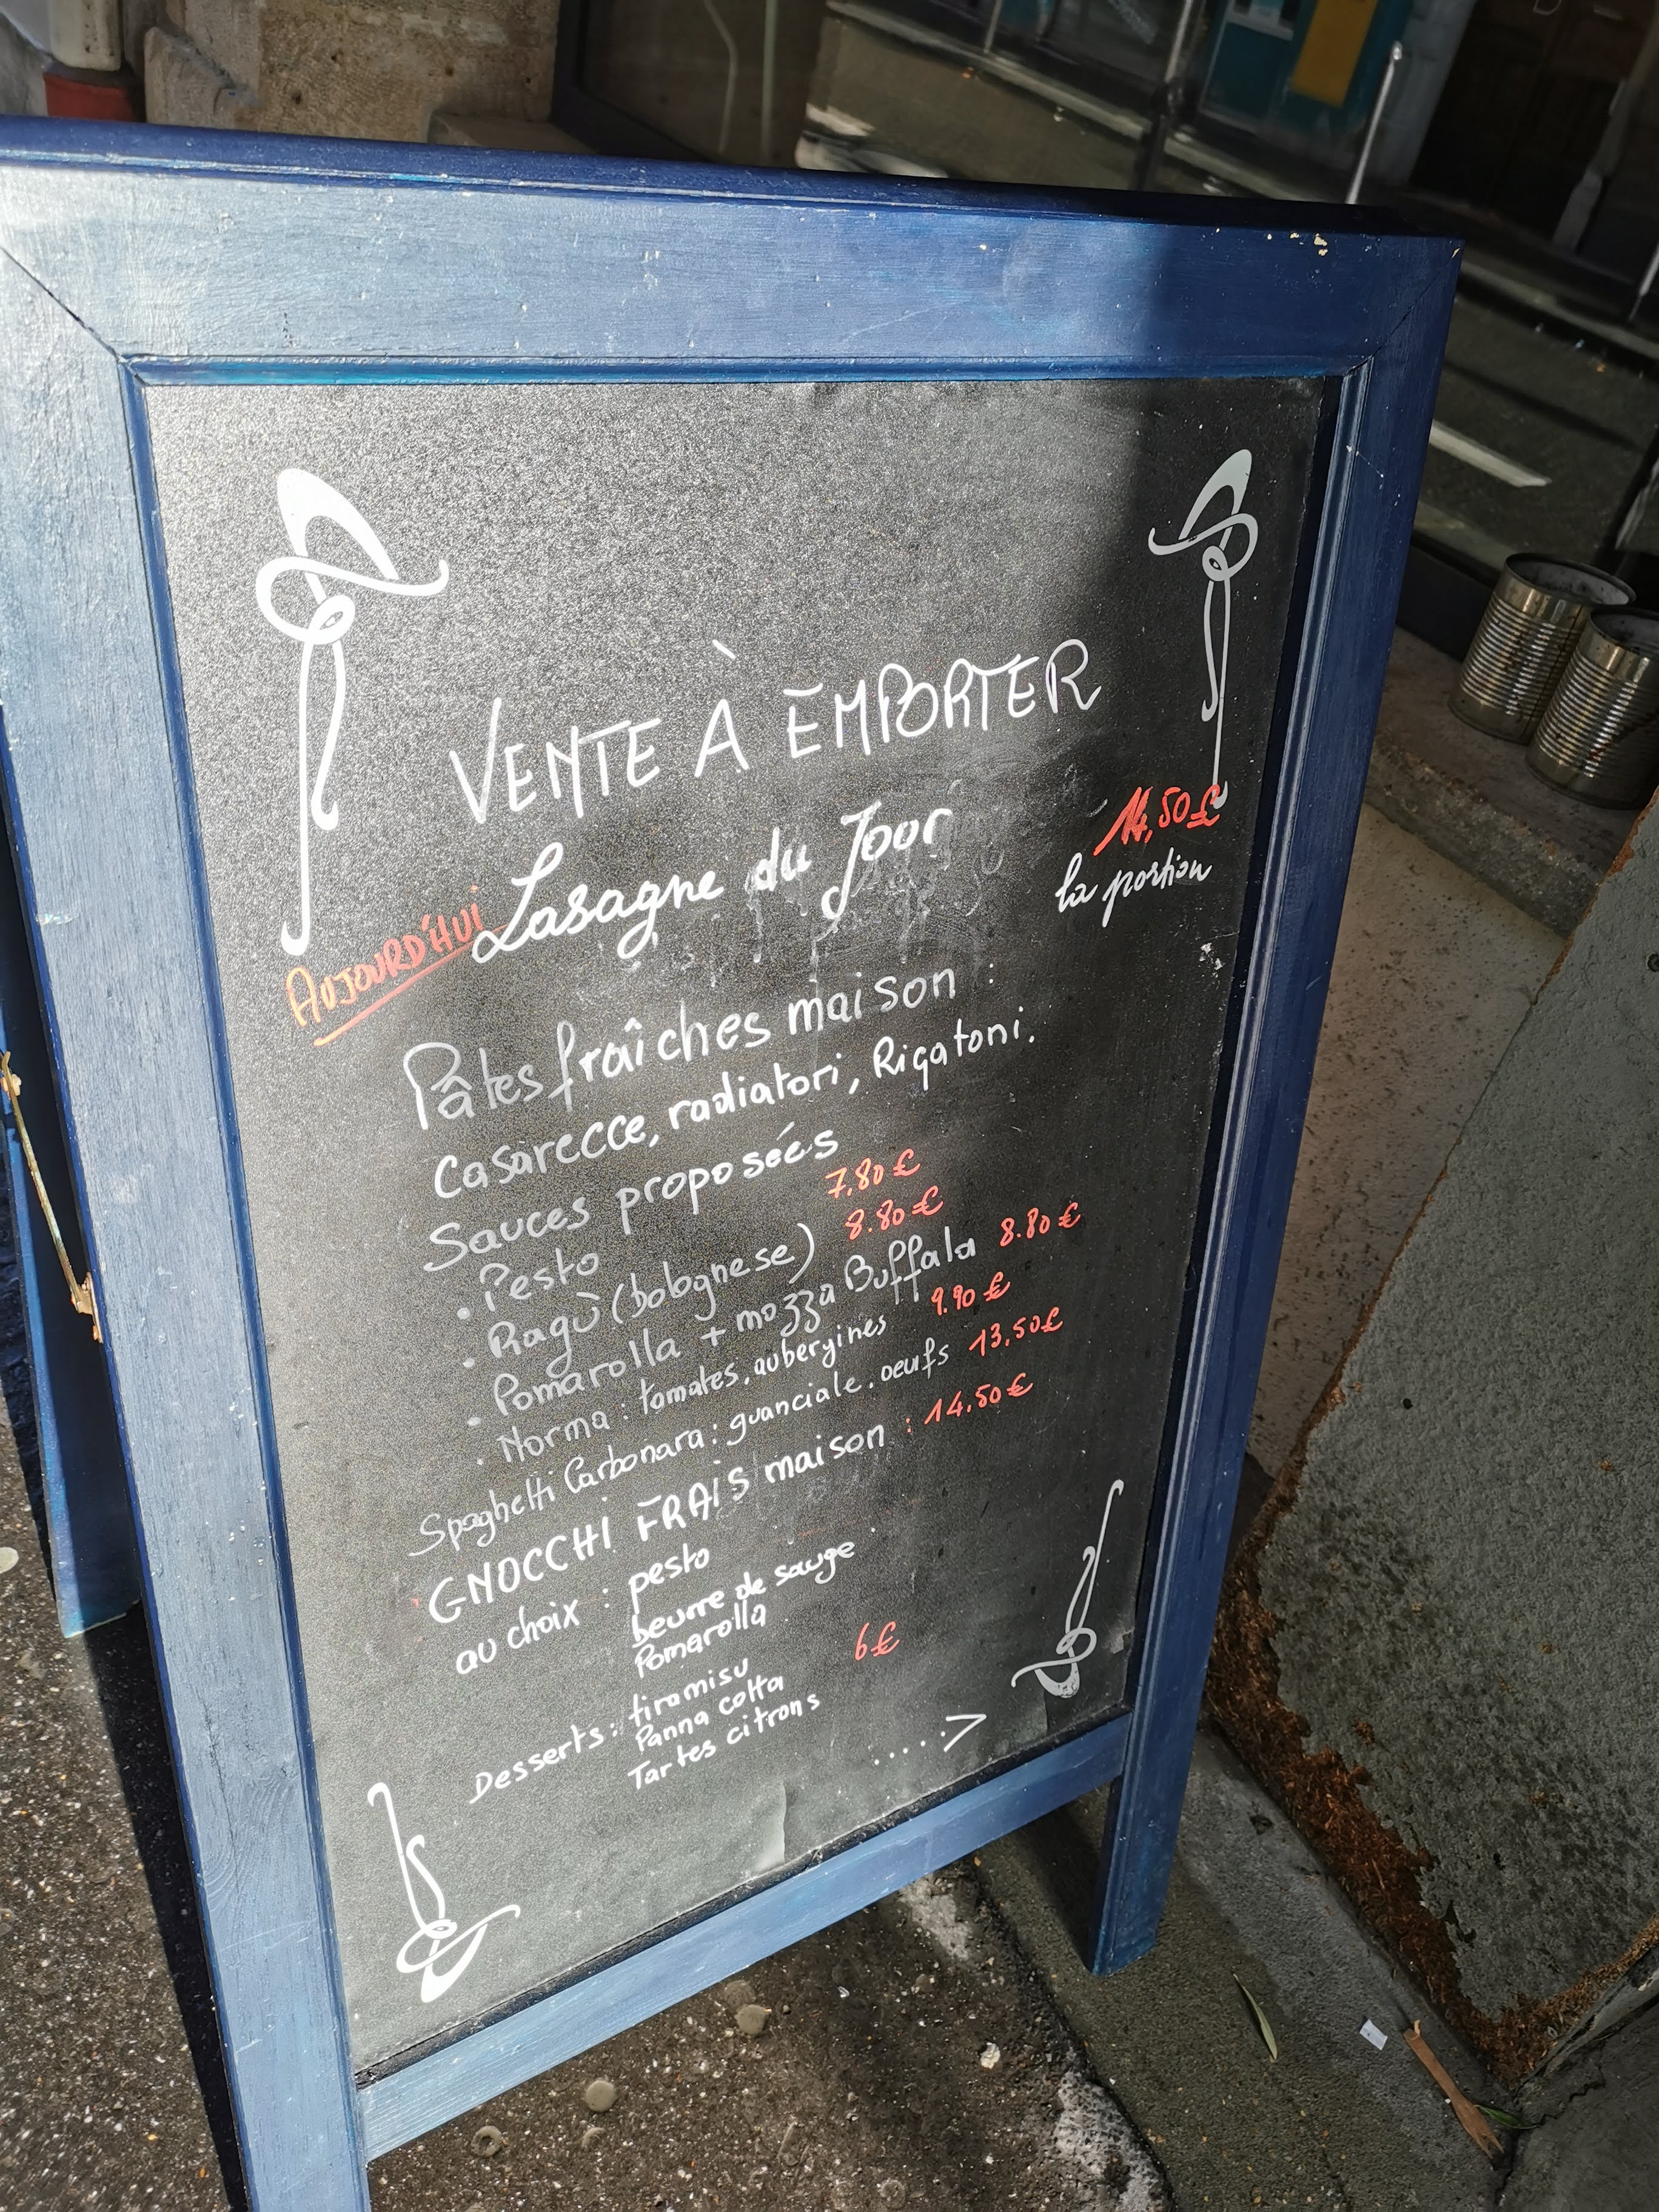 VENTE À EMPORTER
AUJOURD'HUI Lasagne du Jour
la portion
Pâtes fraîches maison :
casarecce, radiatori, Rigatoni.
Sauces proposées
. Pesto 7.80 €
. Ragù (bolognese) 8.80 €
. Pomarolla + mozza Buffala 8.80 €
. Norma : tomates, aubergines 9.90 €
Spaghetti Carbonara : guanciale, oeufs 13.50 €
GNOCCHI FRAIS maison : 14.50 €
au choix : pesto
beurre de sauge
Pomarolla
Desserts : tiramisu 6 €
Panna cotta
Tartes citrons
....>